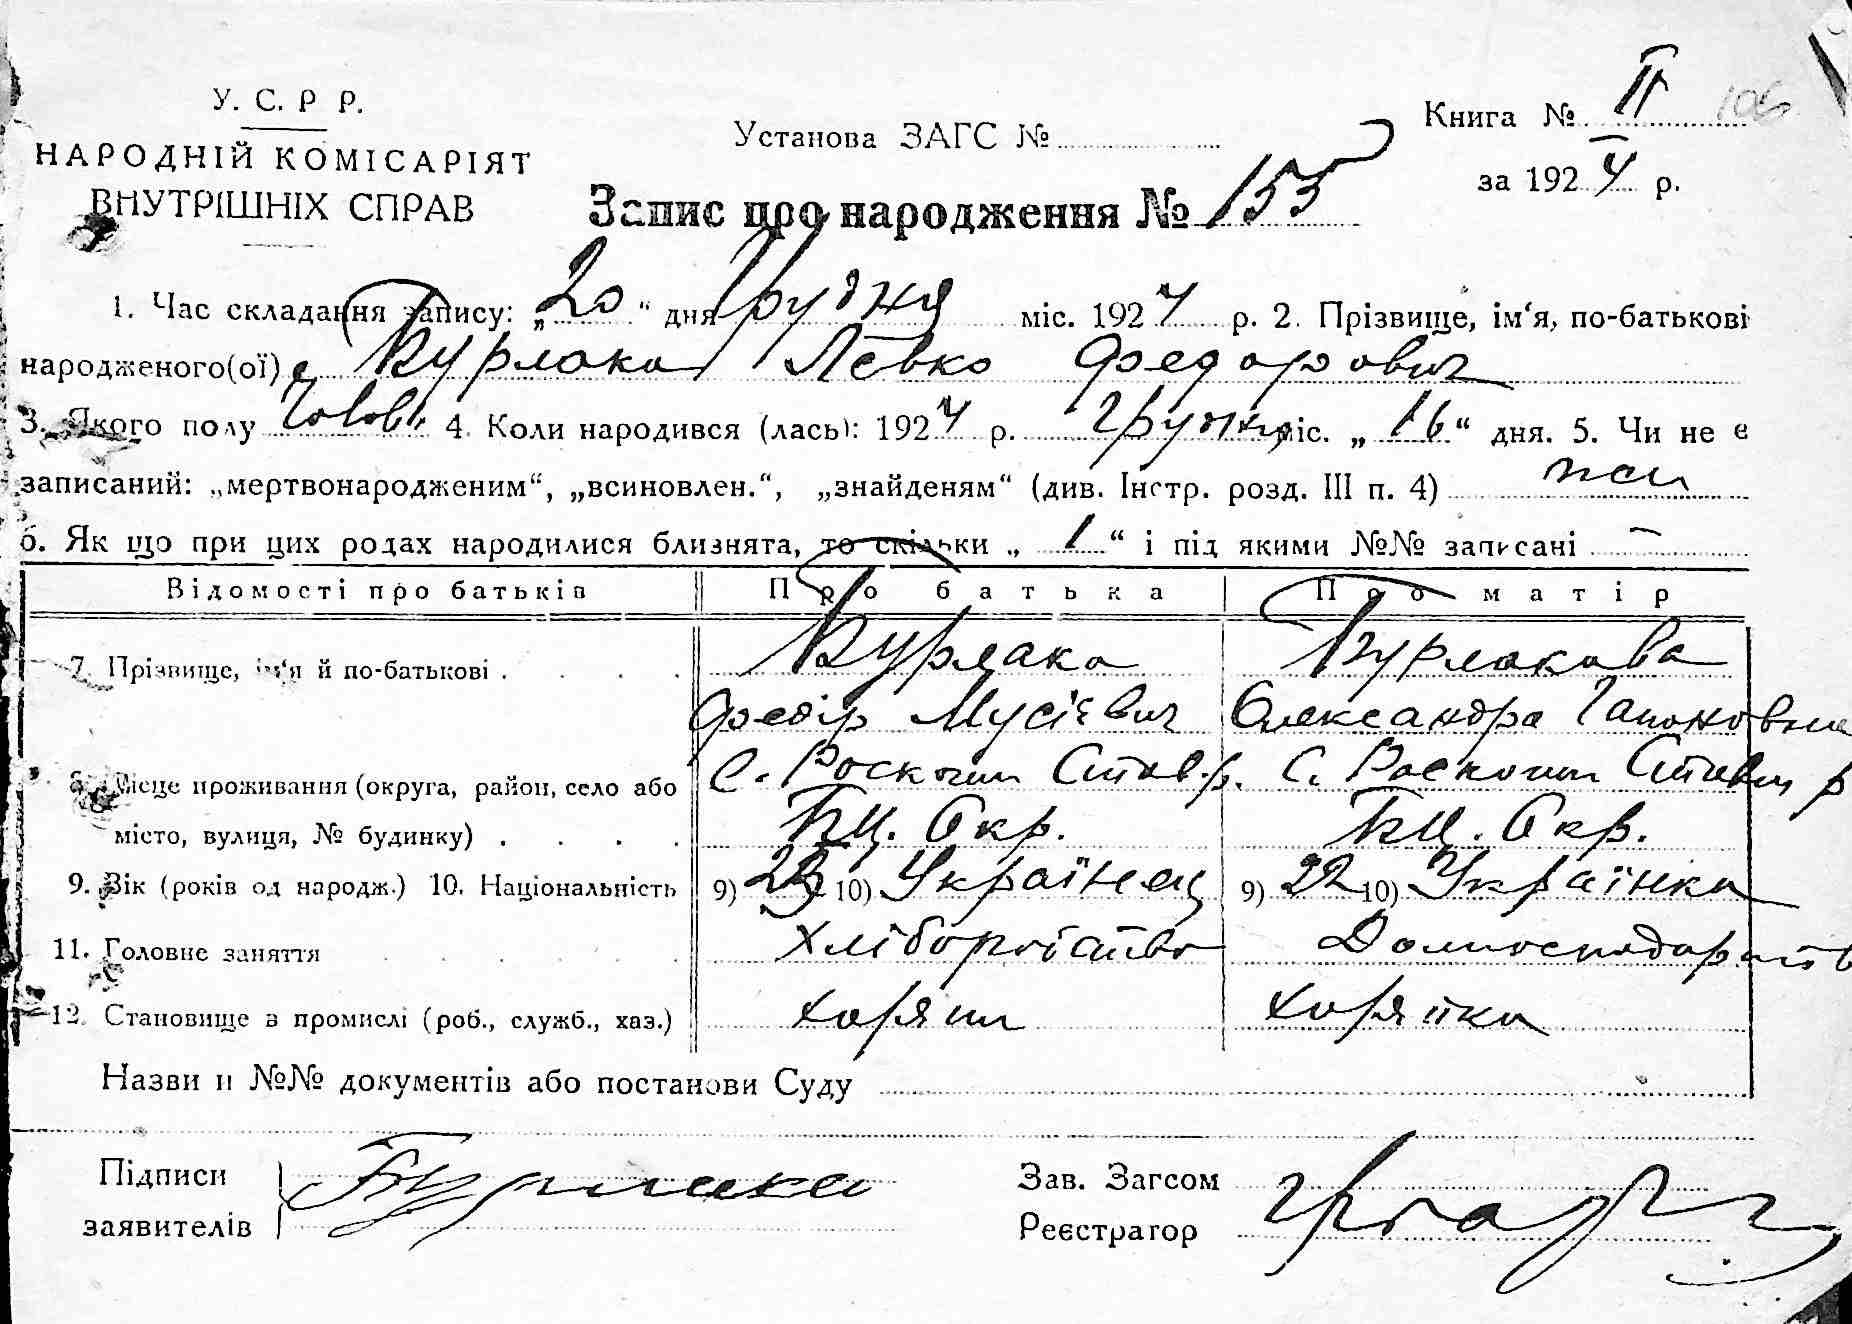 У. С. Р Р.
НАРОДНІЙ КОМІСАРІЯТ
ВНУТРІШНІХ СПРАВ
Установа ЗАГС №
Книга № II 106
за 1924 р.
Запис про народження № 155
1. Час складання запису: „20“ дня Грудня міс. 1924 р. 2. Прізвище, ім‘я, по-батькові
народженого(ої) Бурлака Левко Федорович
3. Якого полу Чолов. 4. Коли народився (лась): 1924 р. Грудня міс. „16“ дня. 5. Чи не є
записаний: „мертвонародженим“, „всиновлен.“, „знайденям“ (див. Інстр. розд. III п. 4)
6. Як що при цих родах народилися близнята, то скільки „1“ і під якими №№ записані —
Відомості про батьків Про батька Про матір
7. Прізвище, ім‘я й по-батькові . . . . Бурлака Бурлакова
Федір Мусієвич Олександра Гапоновна
8. Місце проживання (округа, район, село або с. Роскошн Став. р. с. Роскошн Ставищ р
місто, вулиця, № будинку) . . . . БЦ. Окр. БЦ. Окр.
9. Вік (років од народж.) 10. Національність 9) 23 10) Українец 9) 22 10) Українка
11. Головне заняття . . . . . Хліборобство Домогосподарств
12. Становище в промислі (роб., служб., хаз.) хазяин хазяйка
Назви и №№ документів або постанови Суду
Підписи Бурлака
заявителів
Зав. Загсом
Реєстратор